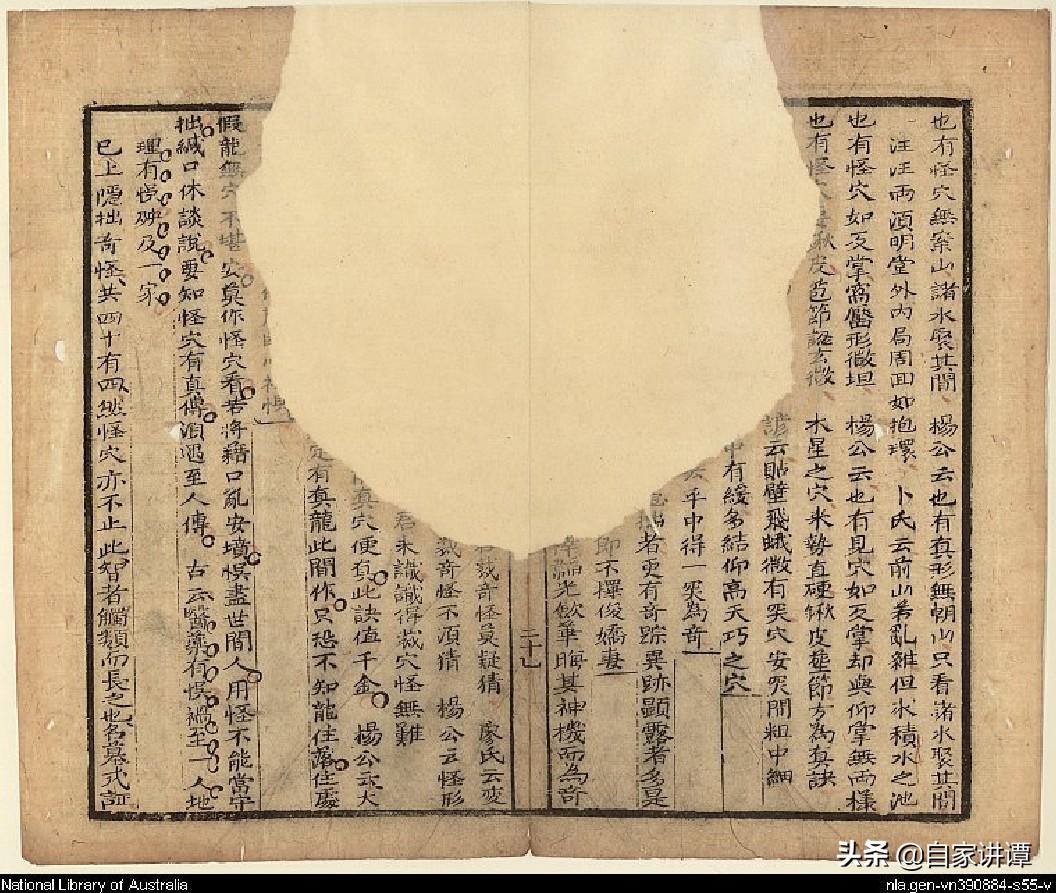 也有怪穴無案山諸水聚其間　楊公云也有真形無朝山只看諸水聚其間
汪汪兩湏明堂外內局周回如抱環　卜氏云前山若亂雜但水積水之池
也有怪穴如反掌窩靨形微坦　楊公云也有見穴如反掌却與仰掌無兩樣
也有怪穴　皮苞節　玄微　木星之穴來勢直硬皺皮苞節方為真訣
諺云貼壁飛蛾微有突穴安突間粗中細
中有緩多結仰高天巧之穴
平中得一突為奇
者更有奇踪異跡顯露者多是
即不擇俊嬌妻
光歛華晦其神機而為奇
二十七
裁奇怪莫疑猜　廖氏云変
裁奇怪不湏猜　楊公云怪形
君未識識得裁穴怪無難
真穴便有此訣值千金　楊公云大
定有真龍此間作只恐不知龍住處住處
悞
假龍無穴不堪安莫作怪穴看若將藉口亂安墳悞盡世間人用怪不能當守
拙緘口休談說要知怪穴有真傳湏遇至人傳　古云醫藥有悞禍至一人地
理有悞殃及一家
已上隱拙奇怪共四十有四然怪穴亦不止此智者觸類而長之也名墓式証
National Library of Australia
nla.gen-vn390884-s55-v
头条 @自家讲谭